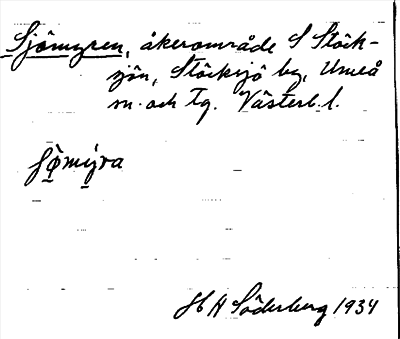 Sjömyren, åkerområde S Stöck-
sjön, Stöcksjö by, Umeå
sn. och Tg. Västerb. l.
H A Söderberg 1934